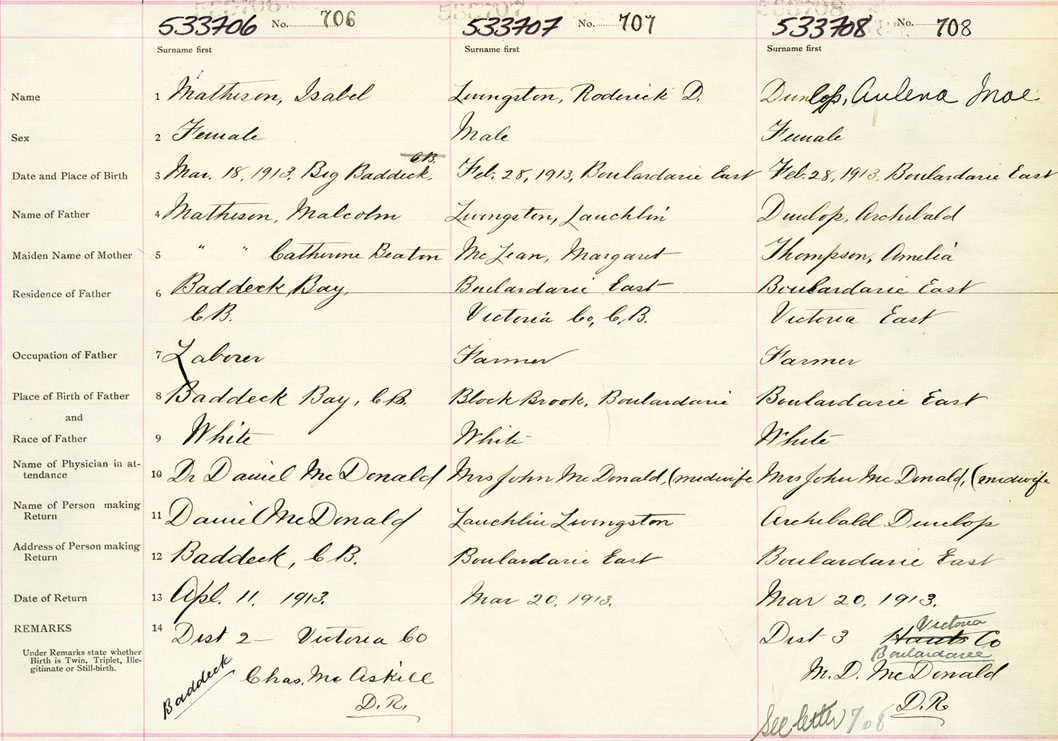 533706 No. 706 533707 No. 707 533708 No. 708
Surname first Surname first Surname first
Name 1 Matheson, Isabel Livingston, Roderick D. Dunlop, Aulena Mae
Sex 2 Female Male Female
C.B.
Date and Place of Birth 3 Mar. 18, 1913, Big Baddeck, Feb. 28, 1913, Boulardarie East Feb. 28, 1913, Boulardarie East
Name of Father 4 Matheson, Malcolm Livingston, Lauchlin Dunlop, Archibald
Maiden Name of Mother 5 " " Catherine Beaton McLean, Margaret Thompson, Amelia
Residence of Father 6 Baddeck Bay, Boulardarie East Boulardarie East
C.B. Victoria Co, C.B. Victoria East
Occupation of Father 7 Laborer Farmer Farmer
Place of Birth of Father 8 Baddeck Bay, C.B. Block Brook, Boulardarie Boulardarie East
and
Race of Father 9 White White White
Name of Physician in at-
tendance 10 Dr Daniel McDonald Mrs John McDonald, (midwife Mrs John McDonald, (midwife
Name of Person making
Return 11 Daniel McDonald Lauchlin Livingston Archibald Dunlop
Address of Person making
Return 12 Baddeck, C.B. Boulardarie East Boulardarie East
Date of Return 13 Apl. 11, 1913. Mar 20, 1913. Mar 20, 1913.
Victoria
REMARKS 14 Dist 2 — Victoria Co Dist 3 Hants Co
Boulardarie
Under Remarks state whether
Birth is Twin, Triplet, Ille-
gitimate or Still-birth.
Baddeck Chas. McAskill M. D. McDonald
D.R. D.R
See letter 708